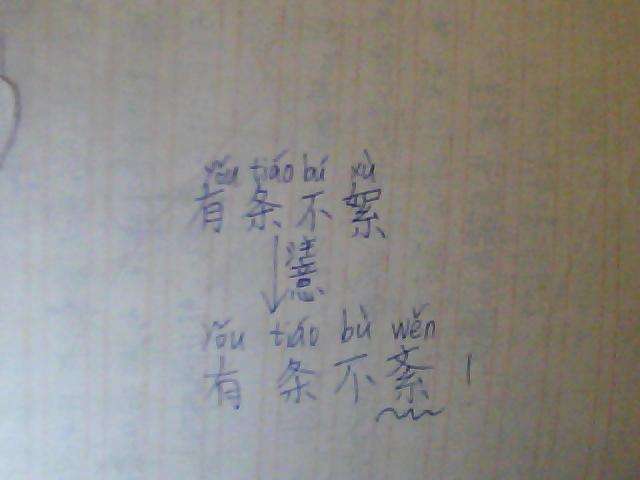 yǒu tiáo bú xù
有条不絮
注意
yǒu tiáo bù wěn
有条不紊!